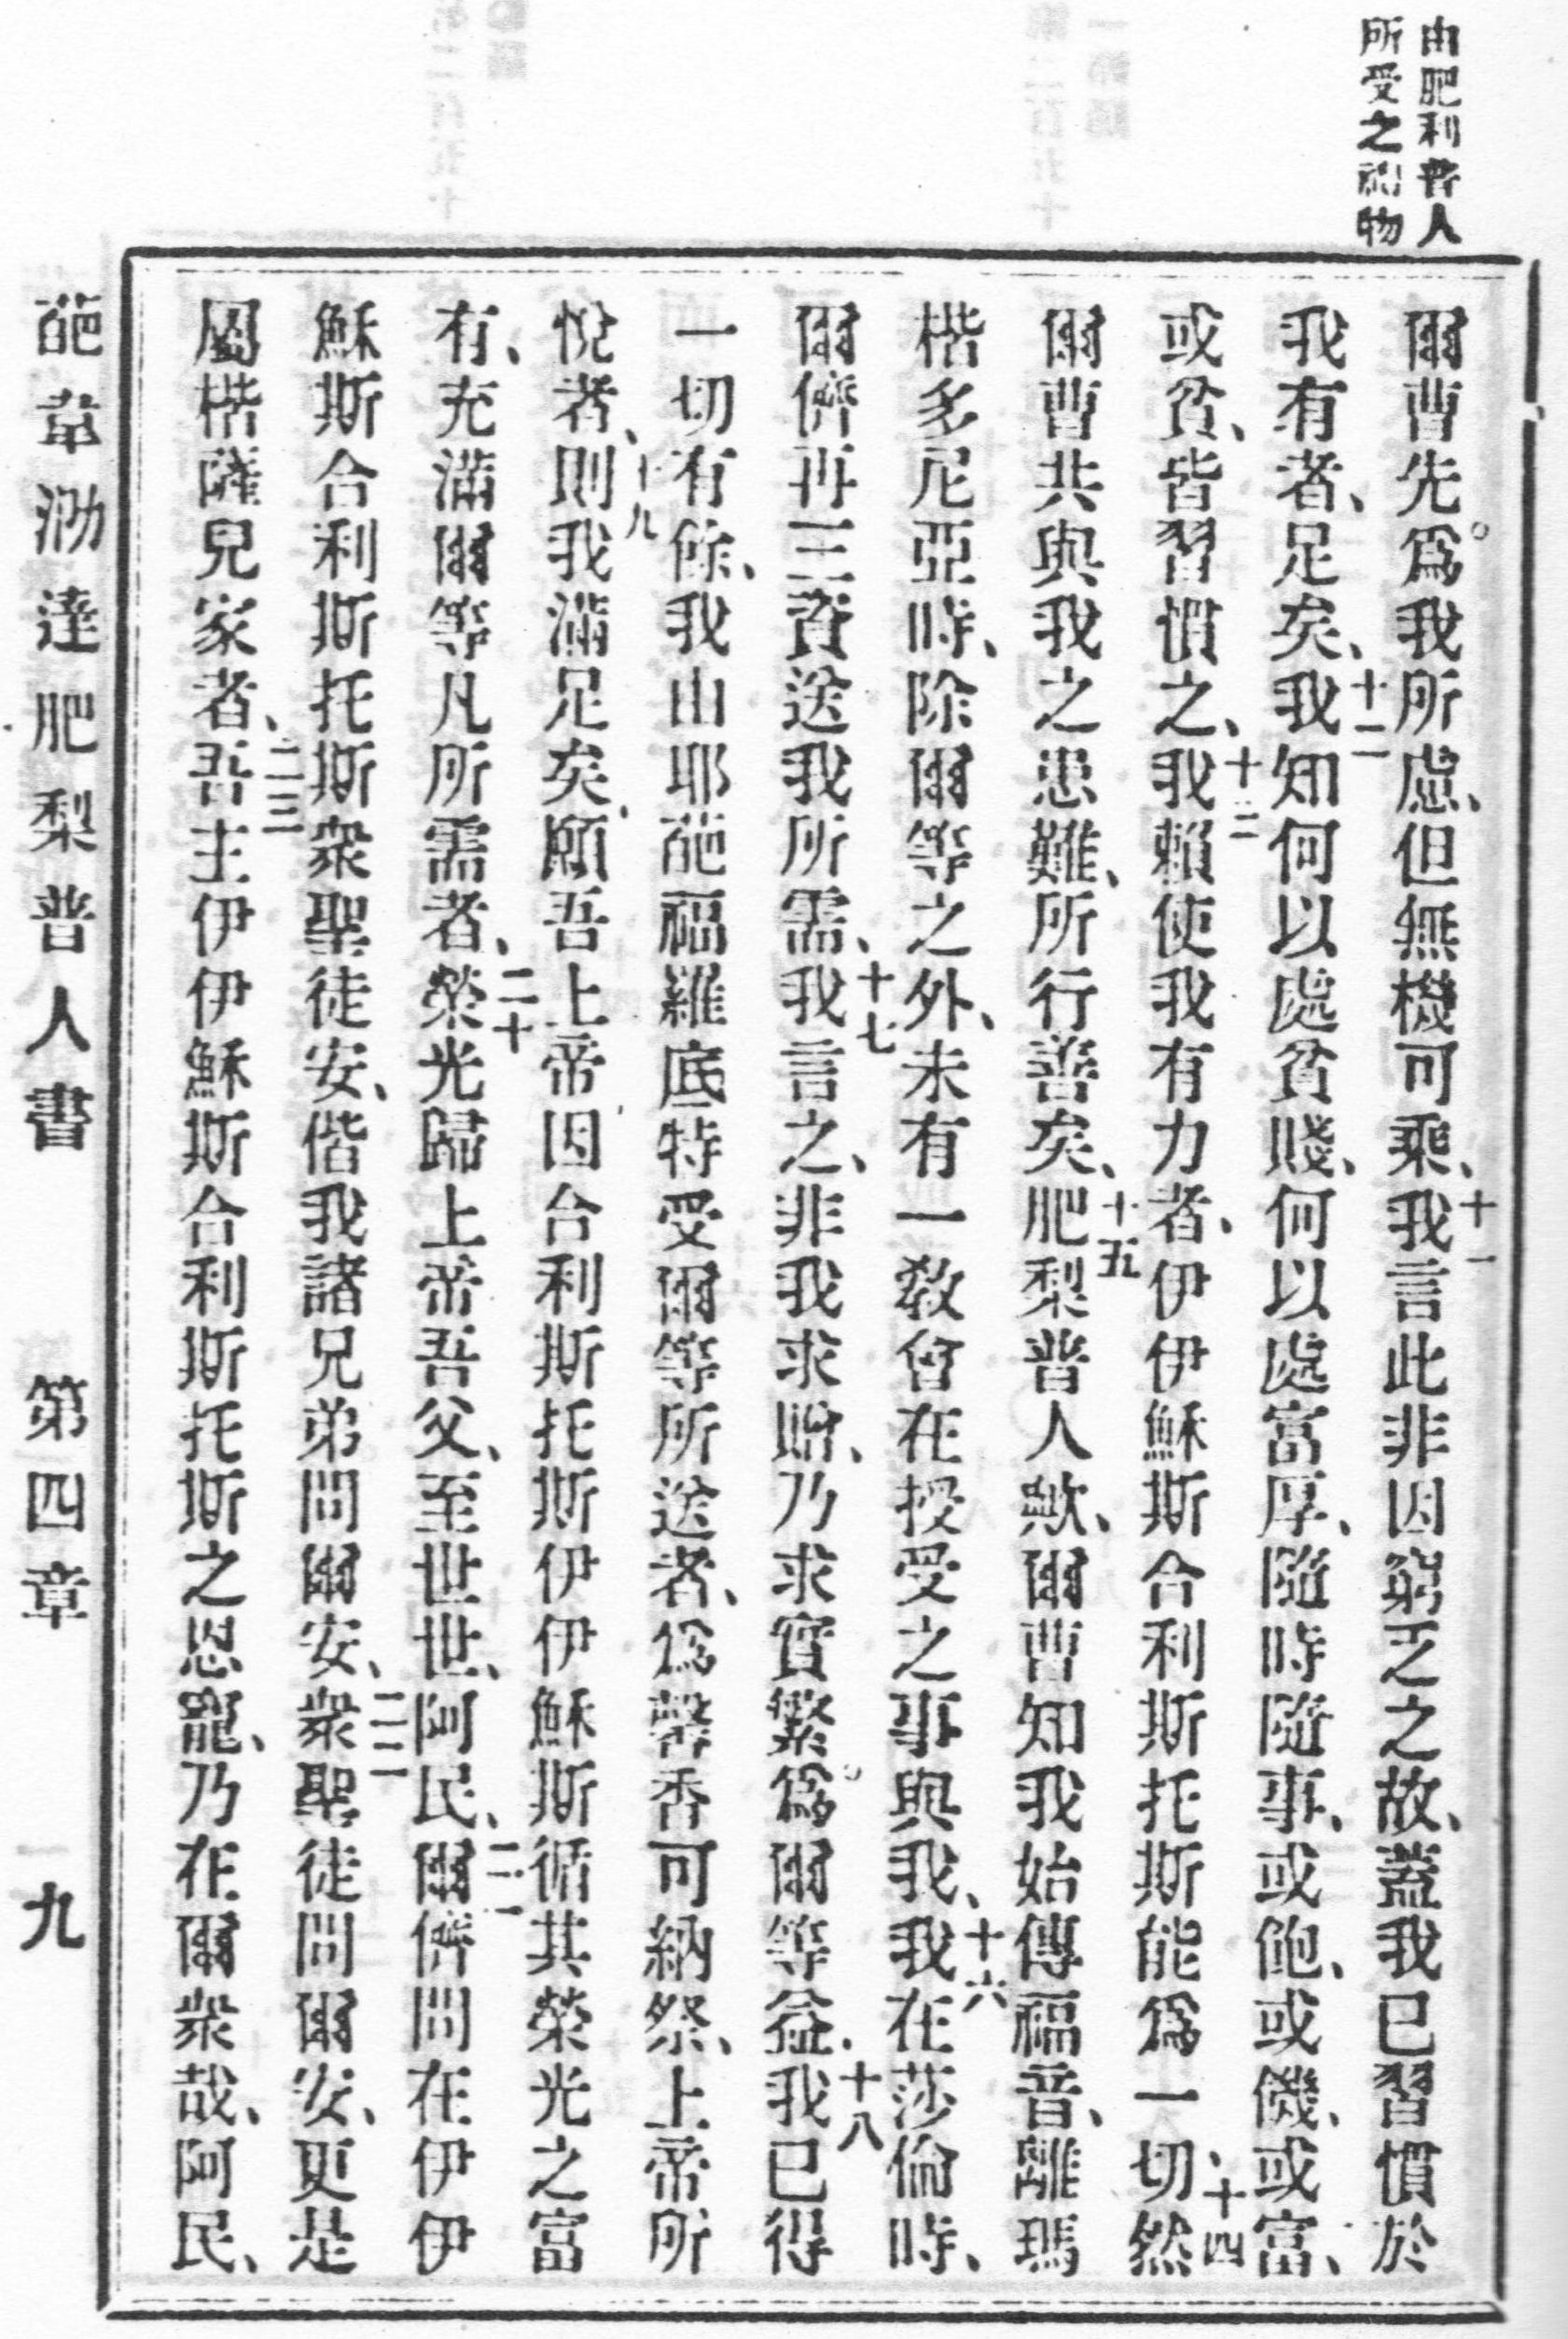 由肥利普人
所受之禮物
爾曹先爲我所慮、但無機可乘、十一我言此非因窮乏之故、蓋我已習慣於
我有者、足矣、十二我知何以處貧賤、何以處富厚、隨時隨事、或飽、或饑、或富、
或貧、皆習慣之、十三我賴使我有力者、伊伊穌斯合利斯托斯能爲一切、十四然
爾曹共與我之患難、所行善矣、十五肥梨普人歟、爾曹知我始傳福音、離瑪
楷多尼亞時、除爾等之外、未有一教會在授受之事與我、十六我在莎倫時、
爾儕再三資送我所需、十七我言之、非我求貽、乃求實繁爲爾等益、十八我已得
一切有餘、我由耶葩福羅底特受爾等所送者、爲馨香可納祭、上帝所
悅者、十九則我滿足矣、願吾上帝因合利斯托斯伊伊穌斯循其榮光之富
有、充滿爾等凡所需者、二十榮光歸上帝吾父、至世世、阿民、二一爾儕問在伊伊
穌斯合利斯托斯衆聖徒安、偕我諸兄弟問爾安、二二衆聖徒問爾安、更是
屬楷薩兒家者、二三吾主伊伊穌斯合利斯托斯之恩寵、乃在爾衆哉、阿民、
葩韋泐達肥梨普人書 第四章 九